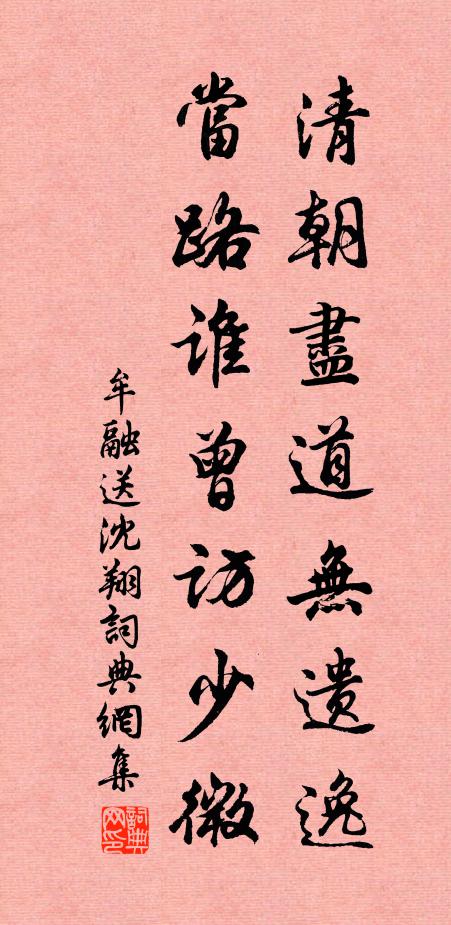 清朝盡道無遺逸
當路誰曾訪少微
牟融送沈翔詞典網集
詞典網印